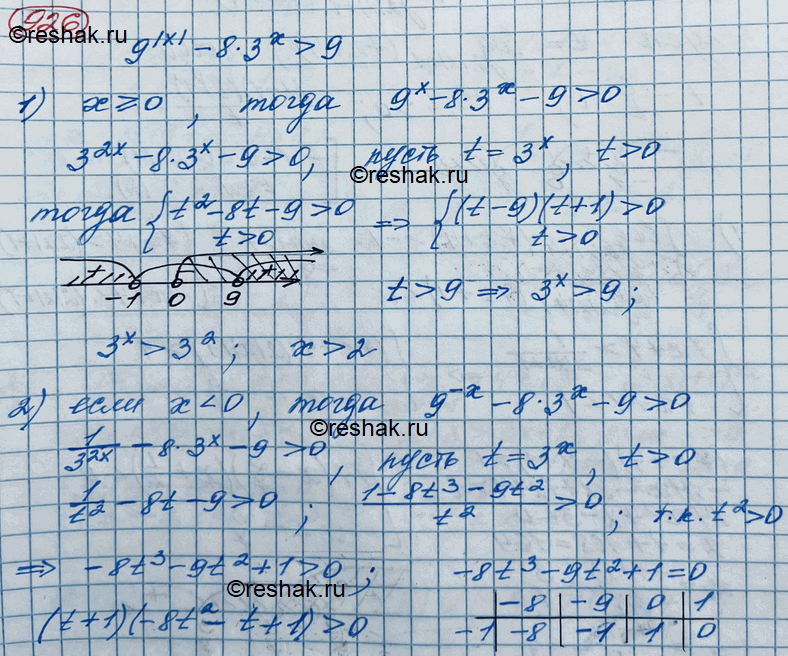 926
©reshak.ru
9^|x| - 8·3^x > 9
1) x ≥ 0, тогда 9^x - 8·3^x - 9 > 0
3^2x - 8·3^x - 9 > 0, пусть t = 3^x, t > 0
©reshak.ru
тогда { t^2 - 8t - 9 > 0 ⟹ { (t-9)(t+1) > 0
t > 0 t > 0
+ - +
-1 0 9 t > 9 ⟹ 3^x > 9;
3^x > 3^2; x > 2
2) если x < 0, тогда 9^-x - 8·3^x - 9 > 0
©reshak.ru
1/3^2x - 8·3^x - 9 > 0, пусть t = 3^x, t > 0
1/t^2 - 8t - 9 > 0; (1 - 8t^3 - 9t^2)/t^2 > 0; т.к. t^2 > 0
⟹ -8t^3 - 9t^2 + 1 > 0; -8t^3 - 9t^2 + 1 = 0
©reshak.ru
| -8 | -9 | 0 | 1
(t+1)(-8t^2 - t + 1) > 0 -1 | -8 | -1 | 1 | 0